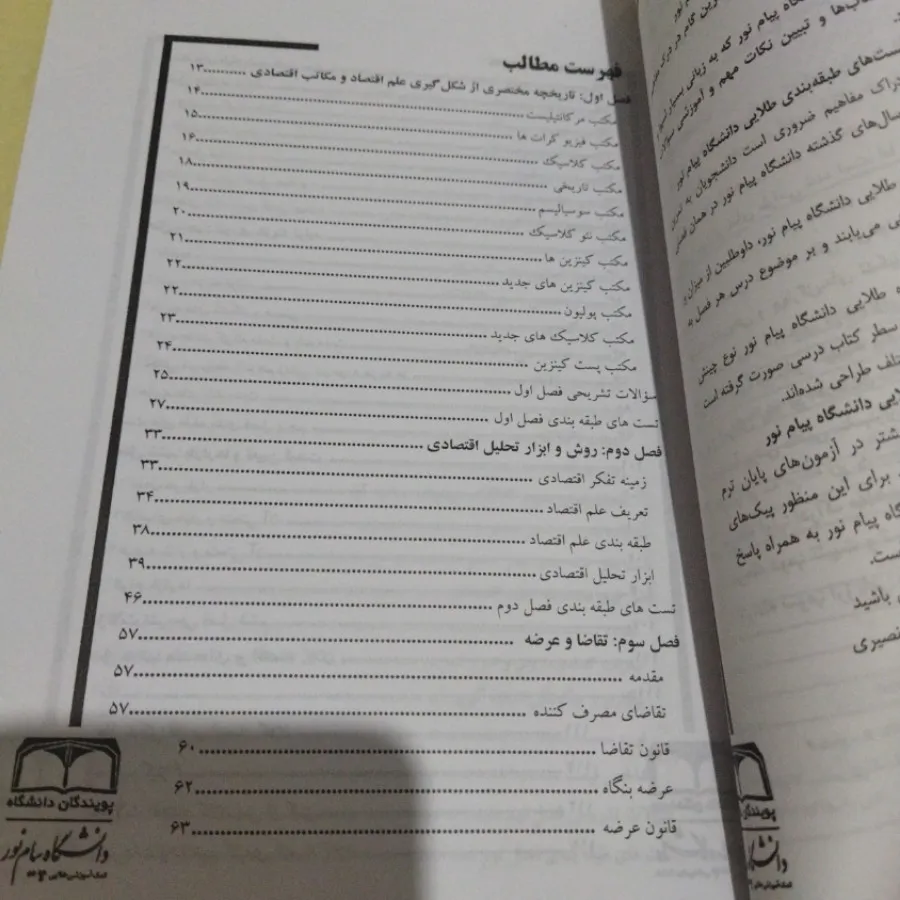 فهرست مطالب
فصل اول: تاریخچه مختصری از شکل گیری علم اقتصاد و مکاتب اقتصادی ..........۱۳
مکتب مرکانتیلیست ..........۱۴
مکتب فیزیو کرات ها ..........۱۵
مکتب کلاسیک ..........۱۶
مکتب تاریخی ..........۱۸
مکتب سوسیالیسم ..........۱۹
مکتب نئو کلاسیک ..........۲۰
مکتب کینزین ها ..........۲۱
مکتب کینزین های جدید ..........۲۲
مکتب پولیون ..........۲۲
مکتب کلاسیک های جدید ..........۲۳
مکتب پست کینزین ..........۲۴
سؤالات تشریحی فصل اول ..........۲۵
تست های طبقه بندی فصل اول ..........۲۷
فصل دوم: روش و ابزار تحلیل اقتصادی ..........۳۳
زمینه تفکر اقتصادی ..........۳۳
تعریف علم اقتصاد ..........۳۴
طبقه بندی علم اقتصاد ..........۳۸
ابزار تحلیل اقتصادی ..........۳۹
تست های طبقه بندی فصل دوم ..........۴۶
فصل سوم: تقاضا و عرضه ..........۵۷
مقدمه ..........۵۷
تقاضای مصرف کننده ..........۵۷
قانون تقاضا ..........۶۰
عرضه بنگاه ..........۶۲
قانون عرضه ..........۶۳
پویندگان دانشگاه
دانشگاه پیام نور
پیام نور که به زبانی بسیار
و تبیین نکات مهم و آموزشی
ست‌های طبقه‌بندی طلایی دانشگاه پیام نور
دراک مفاهیم ضروری است دانشجویان به
سال‌های گذشته دانشگاه پیام نور در همان
طلایی دانشگاه پیام نور، داوطلبین از میزان
می‌یابند و بر موضوع درس هر فصل به
طلایی دانشگاه پیام نور نوع چینش
سطر کتاب درسی صورت گرفته است
تلف طراحی شده‌اند.
لایی دانشگاه پیام نور
شتر در آزمون‌های پایان ترم
برای این منظور پیک‌های
گاه پیام نور به همراه پاسخ
است.
باشید
نصیری